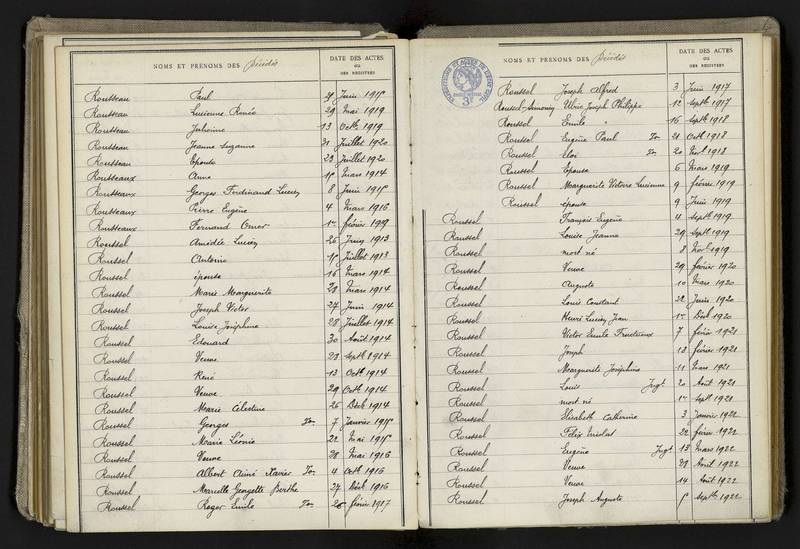 NOMS ET PRÉNOMS DES Décédés
DATE DES ACTES
OU
DES REGISTRES
Rousseau Paul Juin
Rousseau Lucienne Renée 29 Mai 1919
Rousseau Julienne 13 Octb 1919
Rousseau Jeanne Suzanne 31 Juillet 1920
Rousseau Epouse 23 Juillet 1920
Rousseaux Anna Mars 1914
Rousseaux Georges Ferdinand Lucien 8 Juin
Rousseaux Pierre Eugène 4 Mars 1916
Rousseaux Fernand Omer février 1919
Roussel Amédée Lucien 26 Juin 1913
Roussel Antoine Juillet 1913
Roussel épouse 16 Mars 1914
Roussel Marie Marguerite 28 Mars 1914
Roussel Joseph Victor 27 Juin 1914
Roussel Louise Joséphine 28 Juillet 1914
Roussel Edouard 30 Août 1914
Roussel Veuve Septb 1914
Roussel René 13 Octb 1914
Roussel Veuve 29 Octb 1914
Roussel Marie Célestine 26 Décb 1914
Roussel Georges 7 Janvier
Roussel Marie Léonie 22 Mai
Roussel Veuve 28 Mai 1916
Roussel Albert Aimé Xavier 4 Octb 1916
Roussel Marcelle Georgette Berthe 27 Décb 1916
Roussel Roger Emile février 1917
NOMS ET PRÉNOMS DES Décédés
DATE DES ACTES
OU
DES REGISTRES
Roussel Joseph Alfred 3 Juin 1917
Ulric Joseph Philippe 12 Septb 1917
Roussel Emile " 16 Septb 1918
Roussel Eugène Paul 21 Octb 1918
Roussel Eloi 20 Novb 1918
Roussel Epouse 6 Mars 1919
Roussel Marguerite Victoire Lucienne 9 février 1919
Roussel épouse 9 Juin 1919
Roussel François Eugène 4 Septb 1919
Roussel Louise Jeanne 29 Septb 1919
Roussel mort né 8 Novb 1919
Roussel Veuve 29 février 1920
Roussel Auguste 10 Mars 1920
Roussel Louis Constant 22 Juin 1920
Roussel Henri Lucien Jean Décb 1920
Roussel Victor Emile Fructueux 7 févr 1921
Roussel Joseph 13 février 1921
Roussel Marguerite Joséphine 11 Mars 1921
Roussel Louis Jugt 20 Août 1921
Roussel mort né Septb 1921
Roussel Elisabeth Catherine 3 Janvier 1922
Roussel Félix Nicolas 22 février 1922
Roussel Eugène Jugt 13 Mars 1922
Roussel Veuve Avril 1922
Roussel Veuve 14 Août 1922
Roussel Joseph Auguste Septb 1922